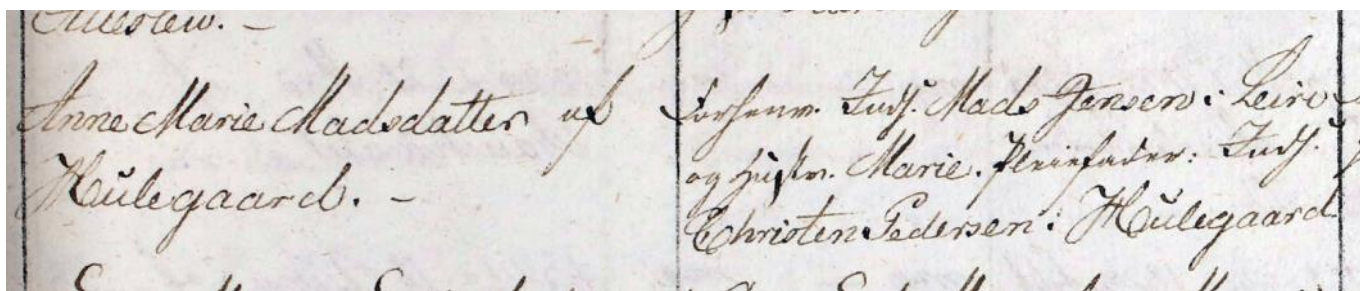 Anne Marie Madsdatter af
Huulegaard. -
Forhenv. Inds. Mads Jensen i Leire
og Hustr. Marie. Pleiefader: Inds.
Christen Pedersen i Huulegaard